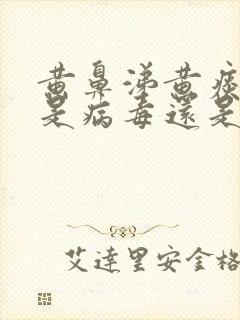 黄鼻涕黄痰
是病毒还是
艾達里安金格